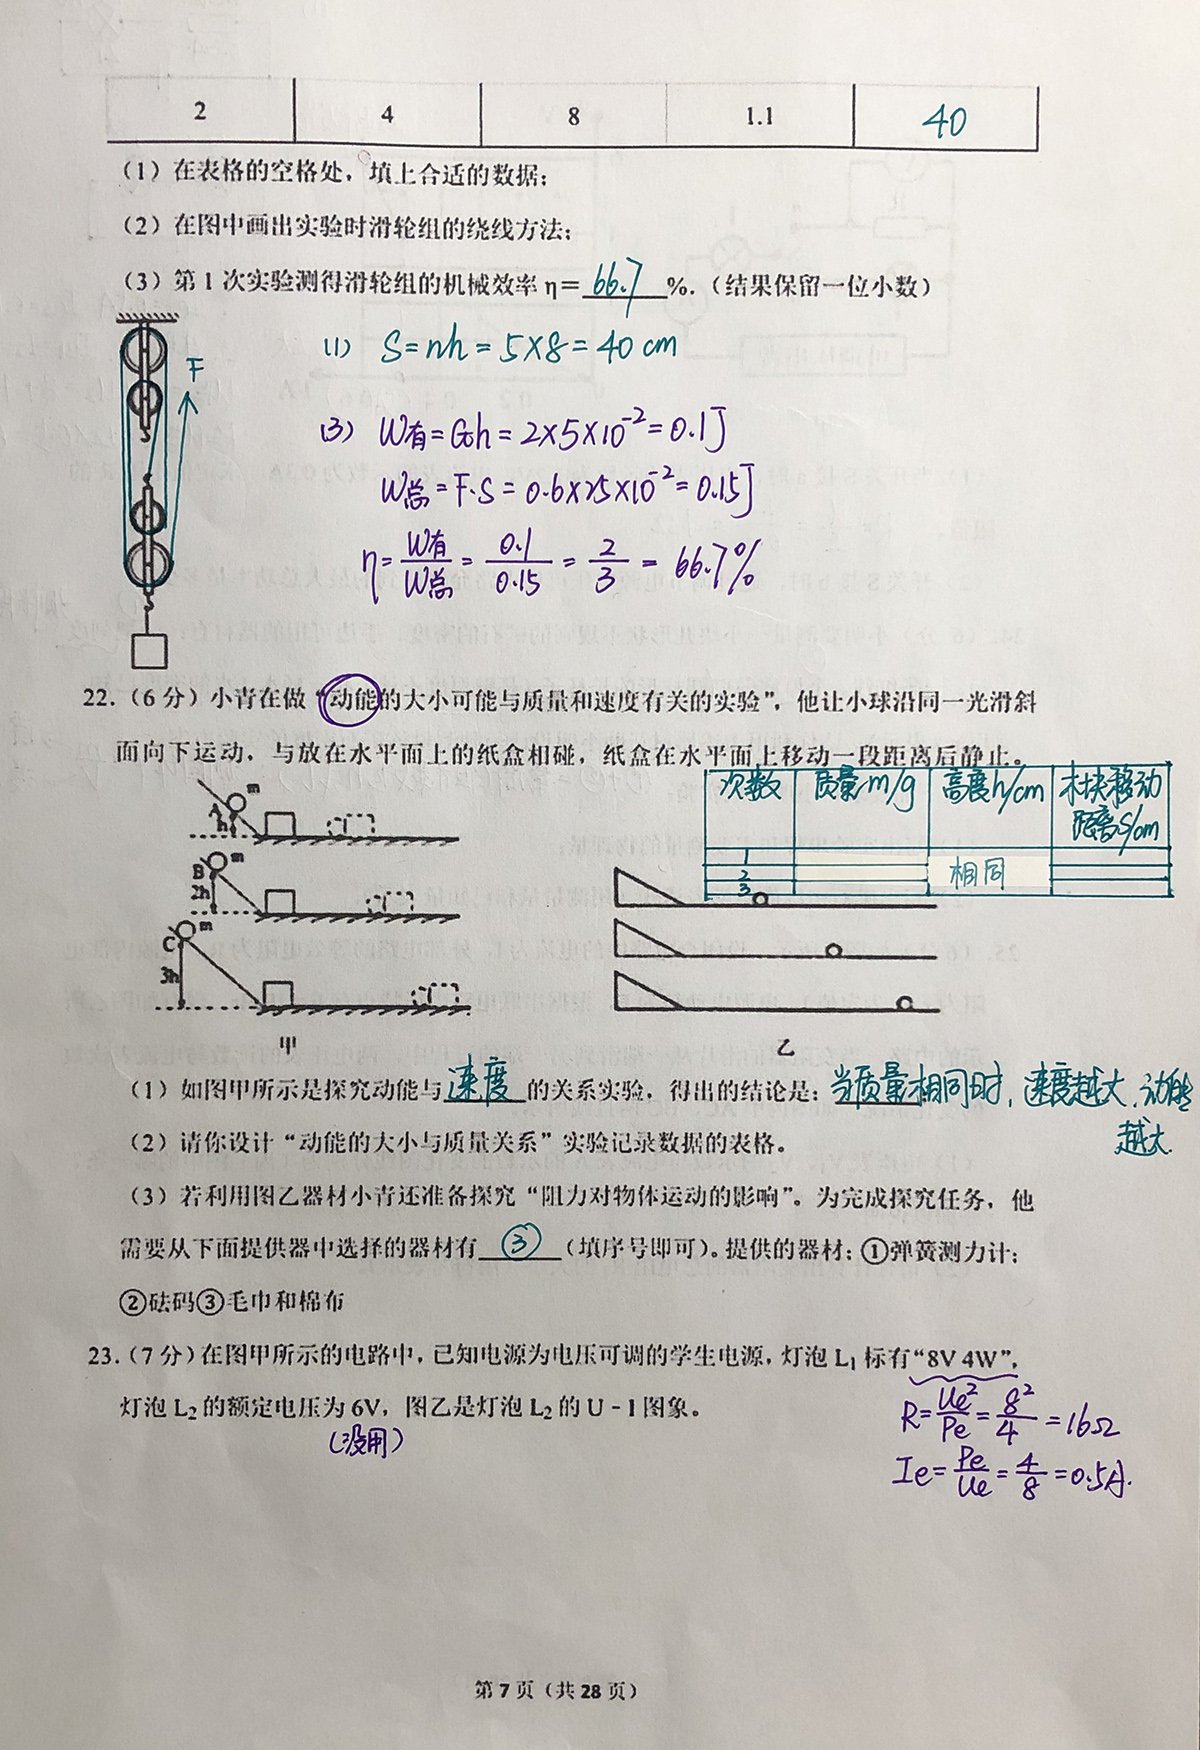 2 4 8 1.1 40
(1)在表格的空格处，填上合适的数据；
(2)在图中画出实验时滑轮组的绕线方法；
(3)第1次实验测得滑轮组的机械效率η=66.7%.(结果保留一位小数)
F
(1) S=nh=5×8=40cm
(3) W有=Gh=2×5×10⁻²=0.1J
W总=F·S=0.6×25×10⁻²=0.15J
η=W有/W总=0.1/0.15=2/3=66.7%
22.(6分)小青在做“动能的大小可能与质量和速度有关的实验”，他让小球沿同一光滑斜
面向下运动，与放在水平面上的纸盒相碰，纸盒在水平面上移动一段距离后静止。
次数 质量m/g 高度h/cm 木块移动距离S/cm
1
2 相同
3
A m h
B m 2h
C m 3h
甲 乙
(1)如图甲所示是探究动能与速度的关系实验，得出的结论是：当质量相同时，速度越大，动能
越大.
(2)请你设计“动能的大小与质量关系”实验记录数据的表格。
(3)若利用图乙器材小青还准备探究“阻力对物体运动的影响”。为完成探究任务，他
需要从下面提供器中选择的器材有③(填序号即可)。提供的器材；①弹簧测力计；
②砝码③毛巾和棉布
23.(7分)在图甲所示的电路中，已知电源为电压可调的学生电源，灯泡L₁标有“8V 4W”，
灯泡L₂的额定电压为6V，图乙是灯泡L₂的U-I图象。
(没用)
R=Ue²/Pe=8²/4=16Ω
Ie=Pe/Ue=4/8=0.5A.
第7页(共28页)